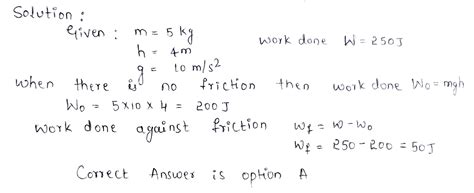 Solution :
Given : m = 5 kg
h = 4m work done W = 250J
g = 10 m/s²
when there is no friction then work done W₀ = mgh
W₀ = 5×10×4 = 200 J
work done against friction wf = w - w₀
Wf = 250 - 200 = 50J
Correct Answer is option A